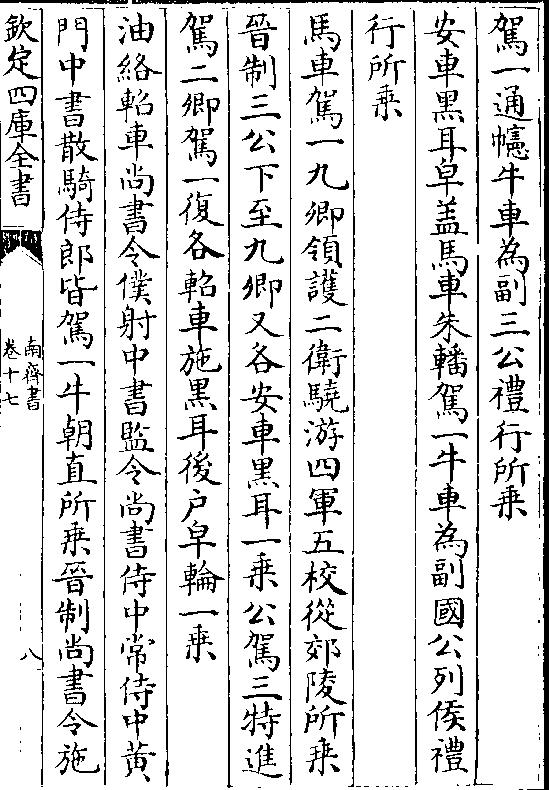 駕一通幰牛車為副三公禮行所乗
安車黒耳皁盖馬車朱轓駕一牛車為副國公列侯禮
行所乗
馬車駕一九卿領護二衛驍游四軍五校從郊陵所乗
晉制三公下至九卿又各安車黒耳一乗公駕三特進
駕二卿駕一復各軺車施黒耳後户皁輪一乗
油絡軺車尚書令僕射中書監令尚書侍中常侍中黄
門中書散騎侍郎皆駕一牛朝直所乗晉制尚書令施
欽定四庫全書
南齊書
卷十七
八